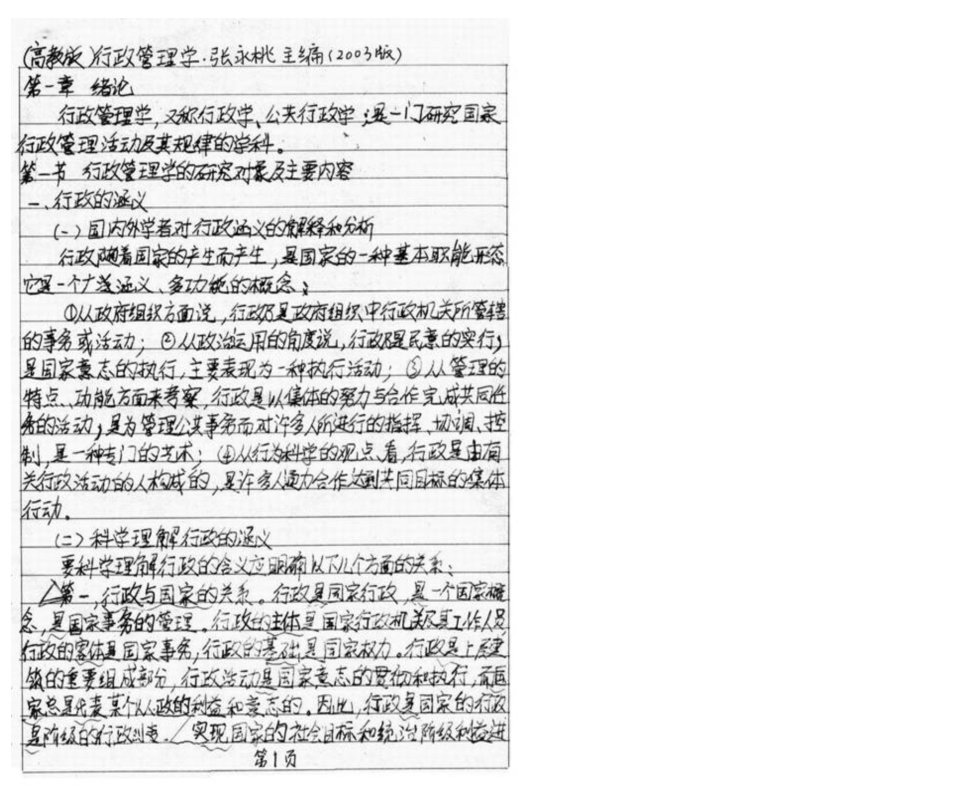 (高教版)行政管理学·张永桃 主编(2003版)
第一章 绪论
行政管理学,又称行政学、公共行政学,是一门研究国家
行政管理活动及其规律的学科。
第一节 行政管理学的研究对象及主要内容
一、行政的涵义
(一)国内外学者对行政涵义的解释和分析
行政随着国家的产生而产生,是国家的一种基本职能形态
它是一个广泛涵义、多功能的概念:
①从政府组织方面说,行政乃是政府组织中行政机关所管辖
的事务或活动;②从政治运用的角度说,行政乃是民意的实行,
是国家意志的执行,主要表现为一种执行活动;③从管理的
特点、功能方面来考察,行政是以集体的努力与合作完成共同任
务的活动,是为管理公共事务而对许多人所进行的指挥、协调、控
制,是一种专门的艺术;④从行为科学的观点看,行政是由有
关行政活动的人构成的,是许多人通力合作达到共同目标的集体
行动。
(二)科学理解行政的涵义
要科学理解行政的含义应明确以下几个方面的关系:
第一,行政与国家的关系。行政是国家行政,是一个国家概
念,是国家事务的管理。行政的主体是国家行政机关及其工作人员
行政的客体是国家事务,行政的基础是国家权力。行政是上层建
筑的重要组成部分,行政活动是国家意志的贯彻和执行,而国
家总是代表某个人政的利益和意志的,因此,行政是国家的行政
是阶级的行政 实现国家的社会目标和统治阶级利益进
第1页